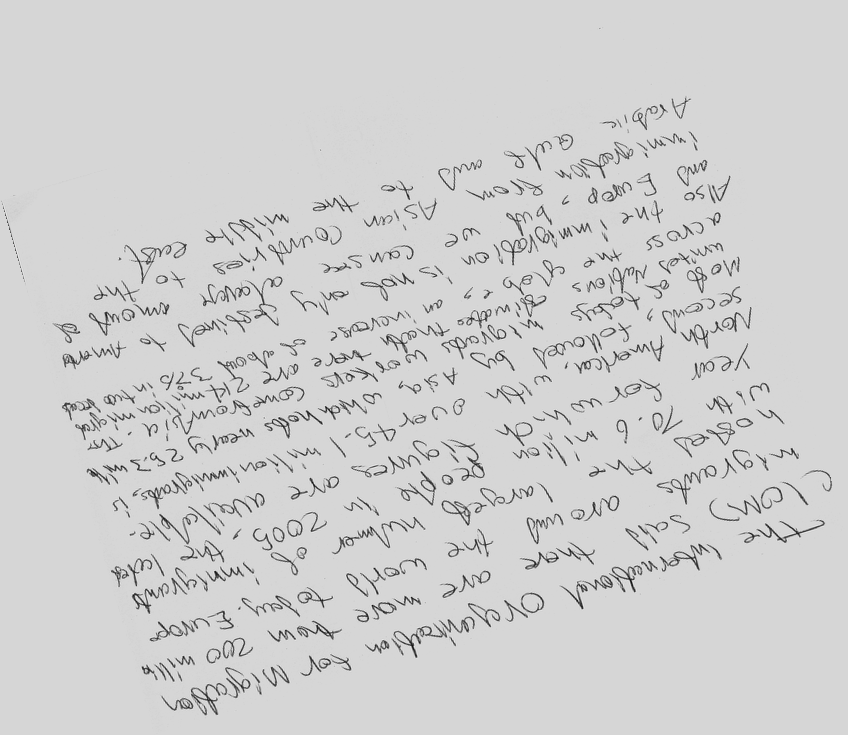 The international Organization for Migration
(IOM) said there are more than 200 millio
migrants around the world today. Europe
hosted the largest numer of immigrants
with 70.6 million people in 2005, the latest
year for which figures are availlable.
North American, with over 45.1 million immigrants, is
second, followed by Asia, which hosts nearly 25.3 mill
Most of todays migrants workers come from Asia. The
united Nations estimates there are 214 million migra
across the glob, an increase of about 37% in two decad
Also the immigration is not only destined to
and Europ, but we can see alarge amount of
immigration from Asian countries to the
gulf and to the middle east.
Arabic